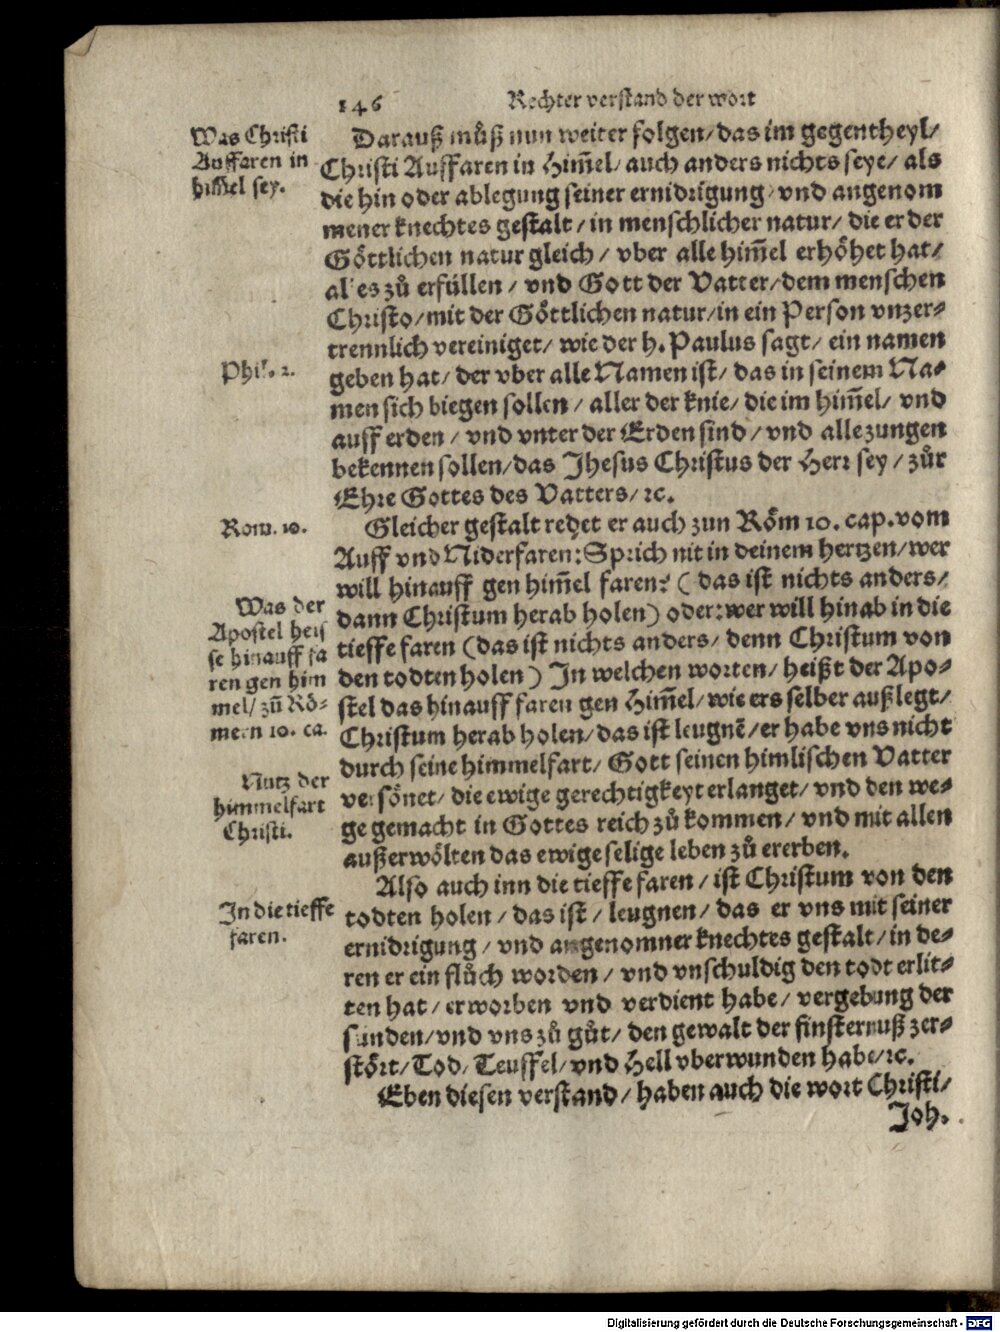 146 Rechter verstand der wort
Was Christi
Auffaren in
him̃el sey.
Darauß můß nun weiter folgen/ das im gegentheyl/
Christi Auffaren in Him̃el/ auch anders nichts seye/ als
die hin oder ablegung seiner ernidrigung/ vnd angenom
mener knechtes gestalt/ in menschlicher natur/ die er der
Göttlichen natur gleich/ vber alle him̃el erhöhet hat/
alles zů erfüllen/ vnd Gott der Vatter/ dem menschen
Christo/ mit der Göttlichen natur/ in ein Person vnzer-
trennlich vereiniget/ wie der h. Paulus sagt/ ein namen
Phil. 2.
geben hat/ der vber alle Namen ist/ das in seinem Na-
men sich biegen sollen/ aller der knie/ die im him̃el/ vnd
auff erden/ vnd vnter der Erden sind/ vnd alle zungen
bekennen sollen/ das Jhesus Christus der Herr sey/ zůr
Ehre Gottes des Vatters/ ꝛc.
Rom. 10.
Gleicher gestalt redet er auch zun Röm 10. cap. vom
Auff vnd Niderfaren: Sprich nit in deinem hertzen/ wer
will hinauff gen him̃el faren? (das ist nichts anders/
dann Christum herab holen) oder: wer will hinab in die
tieffe faren (das ist nichts anders/ denn Christum von
den todten holen) In welchen worten/ heißt der Apo-
stel das hinauff faren gen Him̃el/ wie ers selber außlegt/
Christum herab holen/ das ist leugnẽ/ er habe vns nicht
durch seine himmelfart/ Gott seinen himlischen Vatter
versönet/ die ewige gerechtigkeyt erlanget/ vnd den we-
ge gemacht in Gottes reich zů kommen/ vnd mit allen
außerwölten das ewige selige leben zů ererben.
Was der
Apostel heis
se hinauff fa
ren gen him
mel/ zů Rö-
mern 10. ca.
Nutz der
himmelfart
Christi.
Also auch inn die tieffe faren/ ist Christum von den
todten holen/ das ist/ leugnen/ das er vns mit seiner
ernidrigung/ vnd angenomner knechtes gestalt/ in de-
ren er ein flůch worden/ vnd vnschuldig den todt erlit-
ten hat/ erworben vnd verdient habe/ vergebung der
sünden/ vnd vns zů gůt/ den gewalt der finsternuß zer-
stört/ Tod/ Teuffel/ vnd Hell vberwunden habe/ ꝛc.
In die tieffe
faren.
Eben diesen verstand/ haben auch die wort Christi/
Joh.
Digitalisierung gefördert durch die Deutsche Forschungsgemeinschaft - DFG